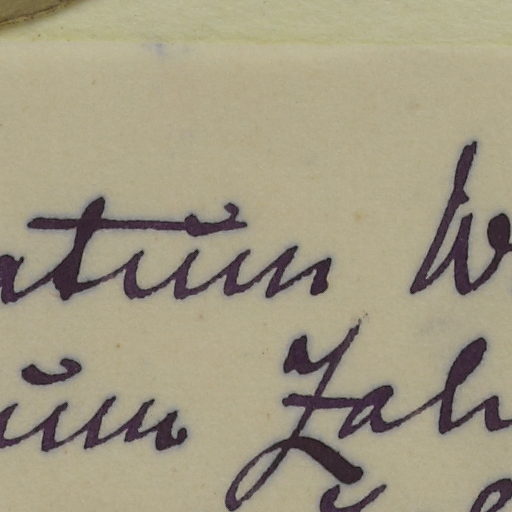 atum W
um Zah